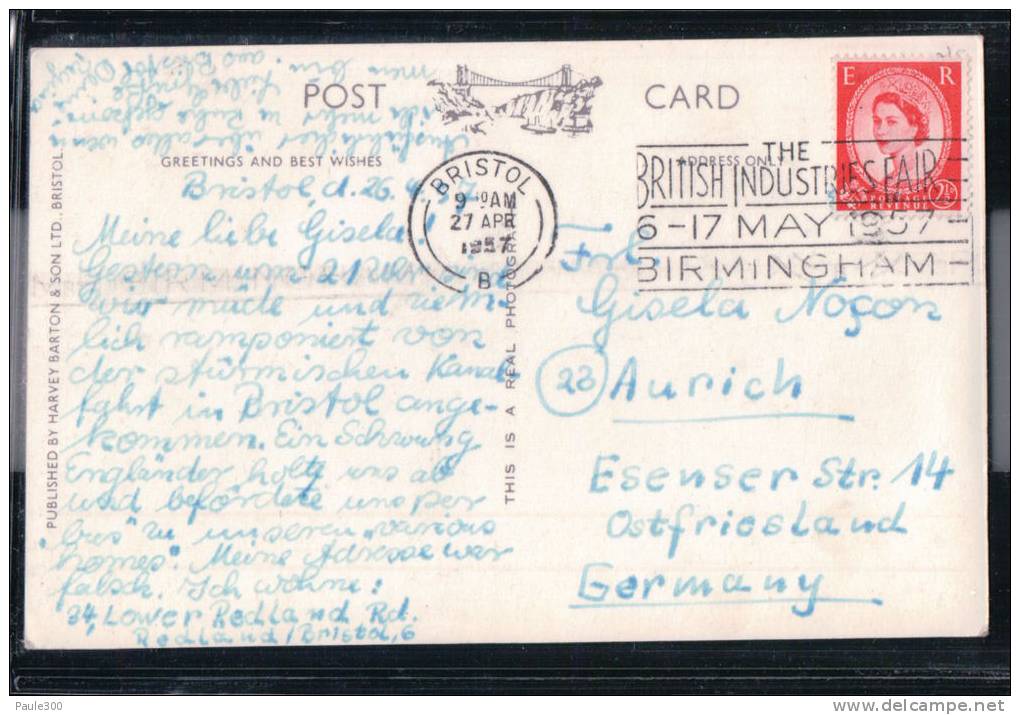 POST CARD
GREETINGS AND BEST WISHES
ADDRESS ONLY
PUBLISHED BY HARVEY BARTON & SON LTD., BRISTOL
THIS IS A REAL PHOTOGRAPH
E R
2½
REVENUE
BRISTOL
9 30 AM
27 APR
1957
B
THE
BRITISH INDUSTRIES FAIR
6-17 MAY 1957
BIRMINGHAM
Bristol, d. 26.4.57
Meine liebe Gisela!
Gestern um 21 Uhr sind
wir müde und ziem-
lich ramponiert von
der stürmischen Kanal-
fahrt in Bristol ange-
kommen. Ein Schwung
Engländer holte uns ab
und beförderte uns per
"bus" zu unseren "various
homes". Meine Adresse war
falsch. Ich wohne:
34, Lower Redland Rd.
Redland/Bristol, 6
Ausführlicher über alles wenn
ich mehr in Ruhe gekom-
men bin.
aus Bristol
Frl.
Gisela Noçon
23 Aurich
Esenser Str. 14
Ostfriesland
Germany
Paule300
delcampe.net